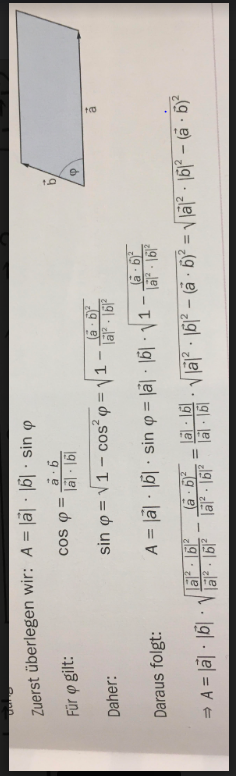 Zuerst überlegen wir: A = |a⃗| · |b⃗| · sin φ
Für φ gilt: cos φ = (a⃗ · b⃗)/(|a⃗| · |b⃗|)
Daher: sin φ = √(1 − cos² φ) = √(1 − (a⃗ · b⃗)²/(|a⃗|² · |b⃗|²))
Daraus folgt: A = |a⃗| · |b⃗| · sin φ = |a⃗| · |b⃗| · √(1 − (a⃗ · b⃗)²/(|a⃗|² · |b⃗|²))
⇒ A = |a⃗| · |b⃗| · √((|a⃗|² · |b⃗|²)/(|a⃗|² · |b⃗|²) − (a⃗ · b⃗)²/(|a⃗|² · |b⃗|²)) = (|a⃗| · |b⃗|)/(|a⃗| · |b⃗|) · √(|a⃗|² · |b⃗|² − (a⃗ · b⃗)²) = √(|a⃗|² · |b⃗|² − (a⃗ · b⃗)²)
b⃗
φ
a⃗